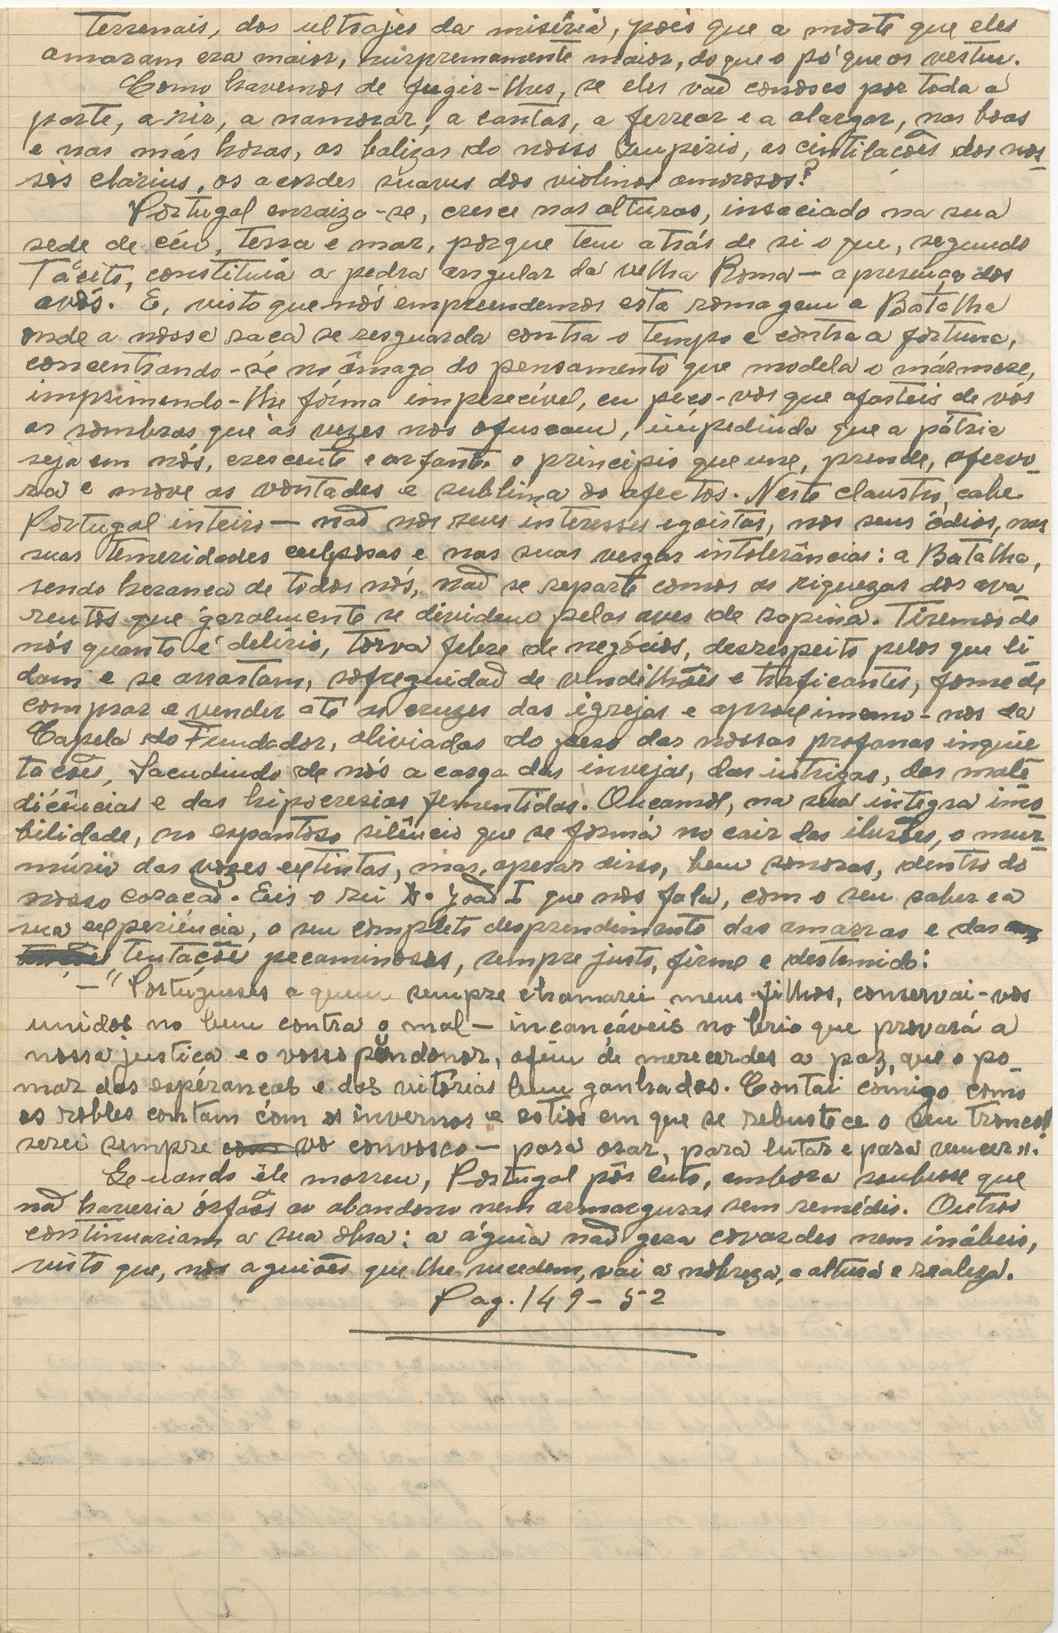 terrenais, dos ultrajes da miséria, pois que a morte que eles
amaram era maior, surpremamente maior, do que o pó que os vestiu.
Como havemos de fugir-lhes, se eles vão conosco por toda a
parte, a rir, a namorar, a cantar, a ferrear e a alargar, nas boas
e nas más horas, as balizas do nosso Império, as cintilações dos nos-
sos clarius, os acordes suaves dos violinos amorosos?
Portugal enraiza-se, cresce nas alturas, insaciado na sua
sede de céu, terra e mar, porque tem atrás de si o que, segundo
Tácito, constituía a pedra angular da velha Roma — a presença dos
avós. E, visto que nós empreendemos esta romagem a Batalha
onde a nossa raça se resguarda contra o tempo e contra a fortuna,
concentrando-se no âmago do pensamento que modela o mármore,
imprimindo-lhe fórma imperecível, eu peço-vos que afasteis de vós
as sombras que às vezes nos ofuscam, impedindo que a pátria
seja em nós, crescente e arfante o princípio que une, prende, afervo-
ra e move as vontades e sublima os afectos. Neste claustro, cabe
Portugal inteiro — não nos seus interesses egoistas, nos seus ódios, nas
suas temeridades culposas e nas suas vesgas intolerâncias: a Batalha,
sendo herança de todos nós, não se reparte comos as riquezas dos ava-
rentos que geralmente se dividem pelas aves de rapina. Tiremos de
nós quanto é delírio, torva febre de negócios, desrespeito pelos que li-
dam e se arrastam, sofreguidão de vendilhões e traficantes, fome de
comprar e vender até as cruzes das igrejas e aproximemo-nos da
Capela do Fundador, aliviados do peso das nossas profanas inquie-
tações, sacudindo de nós a carga das invejas, das intrigas, das male-
dicências e das hipocresias fementidas. Ouçamos, na sua integra imo-
bilidade, no espantoso silêncio que se forma no cair das ilusões, o mur-
múrio das vozes extintas, mas, apesar disso, bem sonoras, dentro do
nosso coração. Eis o rei D. João I que nos fala, com o seu saber e a
sua experiência, o seu completo desprendimento das amarras e das
tentações pecaminosas, sempre justo, firme e destemido:
— "Portugueses a quem sempre chamarei meus filhos, conservai-vos
unidos no bem contra o mal — incançáveis no brio que provará a
nossa justiça e o vosso pundonor, afim de merecerdes a paz, que o po-
mar das espéranças e das vitórias bem ganhadas. Contai comigo como
os robles contam com os invernos e estios em que se robustece o seu tronco!
serei sempre convosco — para orar, para lutar e para vencer".
Quando êle morreu, Portugal pôs luto, embora soubesse que
não haveria órfãos ao abandono nem armarguras sem remédio. Outros
continuariam a sua obra: a águia não gera covardes nem inábeis,
visto que, nos aguiões que lhe sucedem, vai a nobreza, a altura e realeza.
Pag. 149-52